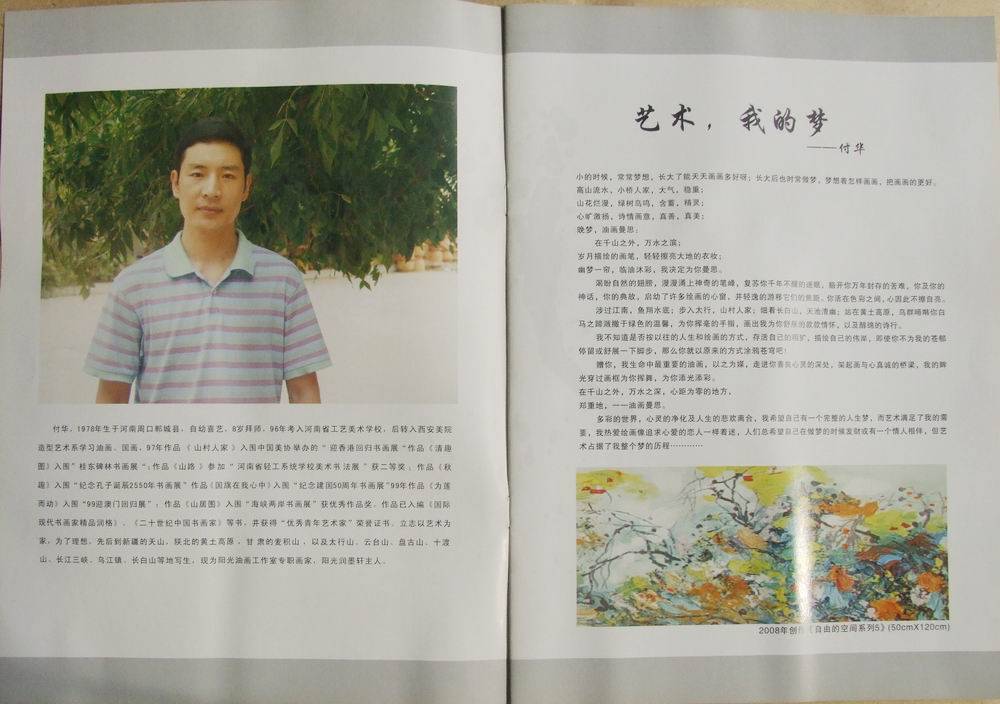 付华，1978年生于河南周口郸城县，自幼喜艺，8岁拜师，96年考入河南省工艺美术学校，后转入西安美院
造型艺术系学习油画、国画，97年作品《山村人家》入围中国美协举办的“迎香港回归书画展”作品《清趣
图》入围“桂东碑林书画展”；作品《山路》参加“河南省轻工系统学校美术书法展”获二等奖，作品《秋
趣》入围“纪念孔子诞辰2550年书画展”作品《国旗在我心中》入围“纪念建国50周年书画展”99年作品《为莲
而动》入围“99迎澳门回归展”；作品《山居图》入围“海峡两岸书画展”获优秀作品奖，作品已入编《国际
现代书画家精品润格》、《二十世纪中国书画家》等书，并获得“优秀青年艺术家”荣誉证书，立志以艺术为
家，为了理想，先后到新疆的天山，陕北的黄土高原，甘肃的麦积山，以及太行山、云台山、盘古山、十渡
山、长江三峡、乌江镇、长白山等地写生，现为阳光油画工作室专职画家，阳光润墨轩主人。
艺术，我的梦
——付华
小的时候，常常梦想，长大了能天天画画多好呀；长大后也时常做梦，梦想着怎样画画，把画画的更好。
高山流水，小桥人家，大气，稳重；
山花烂漫，绿树鸟鸣，含蓄，精灵；
心旷激扬，诗情画意，真善，真美；
晚梦，油画曼思：
在千山之外，万水之滨；
岁月描绘的画笔，轻轻擦亮大地的衣妆；
幽梦一帘，临油沐彩，我决定为你曼思。
渴盼自然的翅膀，漫漫涌上神奇的笔峰，复苏你千年不醒的迷眠，豁开你万年封存的苦难，你及你的
神话，你的典故，启动了许多绘画的心窗，并轻逸的游移它们的焦距。你活在色彩之间，心因此不擦自亮。
涉过江南，鱼翔水底；步入太行，山村人家；烟着长白山，天池清幽；站在黄土高原，鸟群嘀啾你白
马之蹄溅撒于绿色的温馨，为你挥毫的手指，画出我为你舒放的款款情怀，以及醇绵的诗行。
我不知道是否按以往的人生和绘画的方式，存活自己的粗犷，描绘自己的伟岸，即使你不为我的苍郁
停留或舒展一下脚步，那么你就以原来的方式涂鸦苍穹吧！
赠你，我生命中最重要的油画，以之为媒，走进你喜筑心灵的深处，架起画与心真诚的桥梁，我的眸
光穿过画框为你挥舞，为你添光添彩。
在千山之外，万水之深，心距为零的地方，
郑重地，一一油画曼思。
多彩的世界，心灵的净化及人生的悲欢离合，我希望自己有一个完整的人生梦，而艺术满足了我的需
要，我热爱绘画像追求心爱的恋人一样着迷，人们总希望自己在做梦的时候发财或有一个情人相伴，但艺
术占据了我整个梦的历程…………
2008年创作《自由的空间系列5》(50cmX120cm)